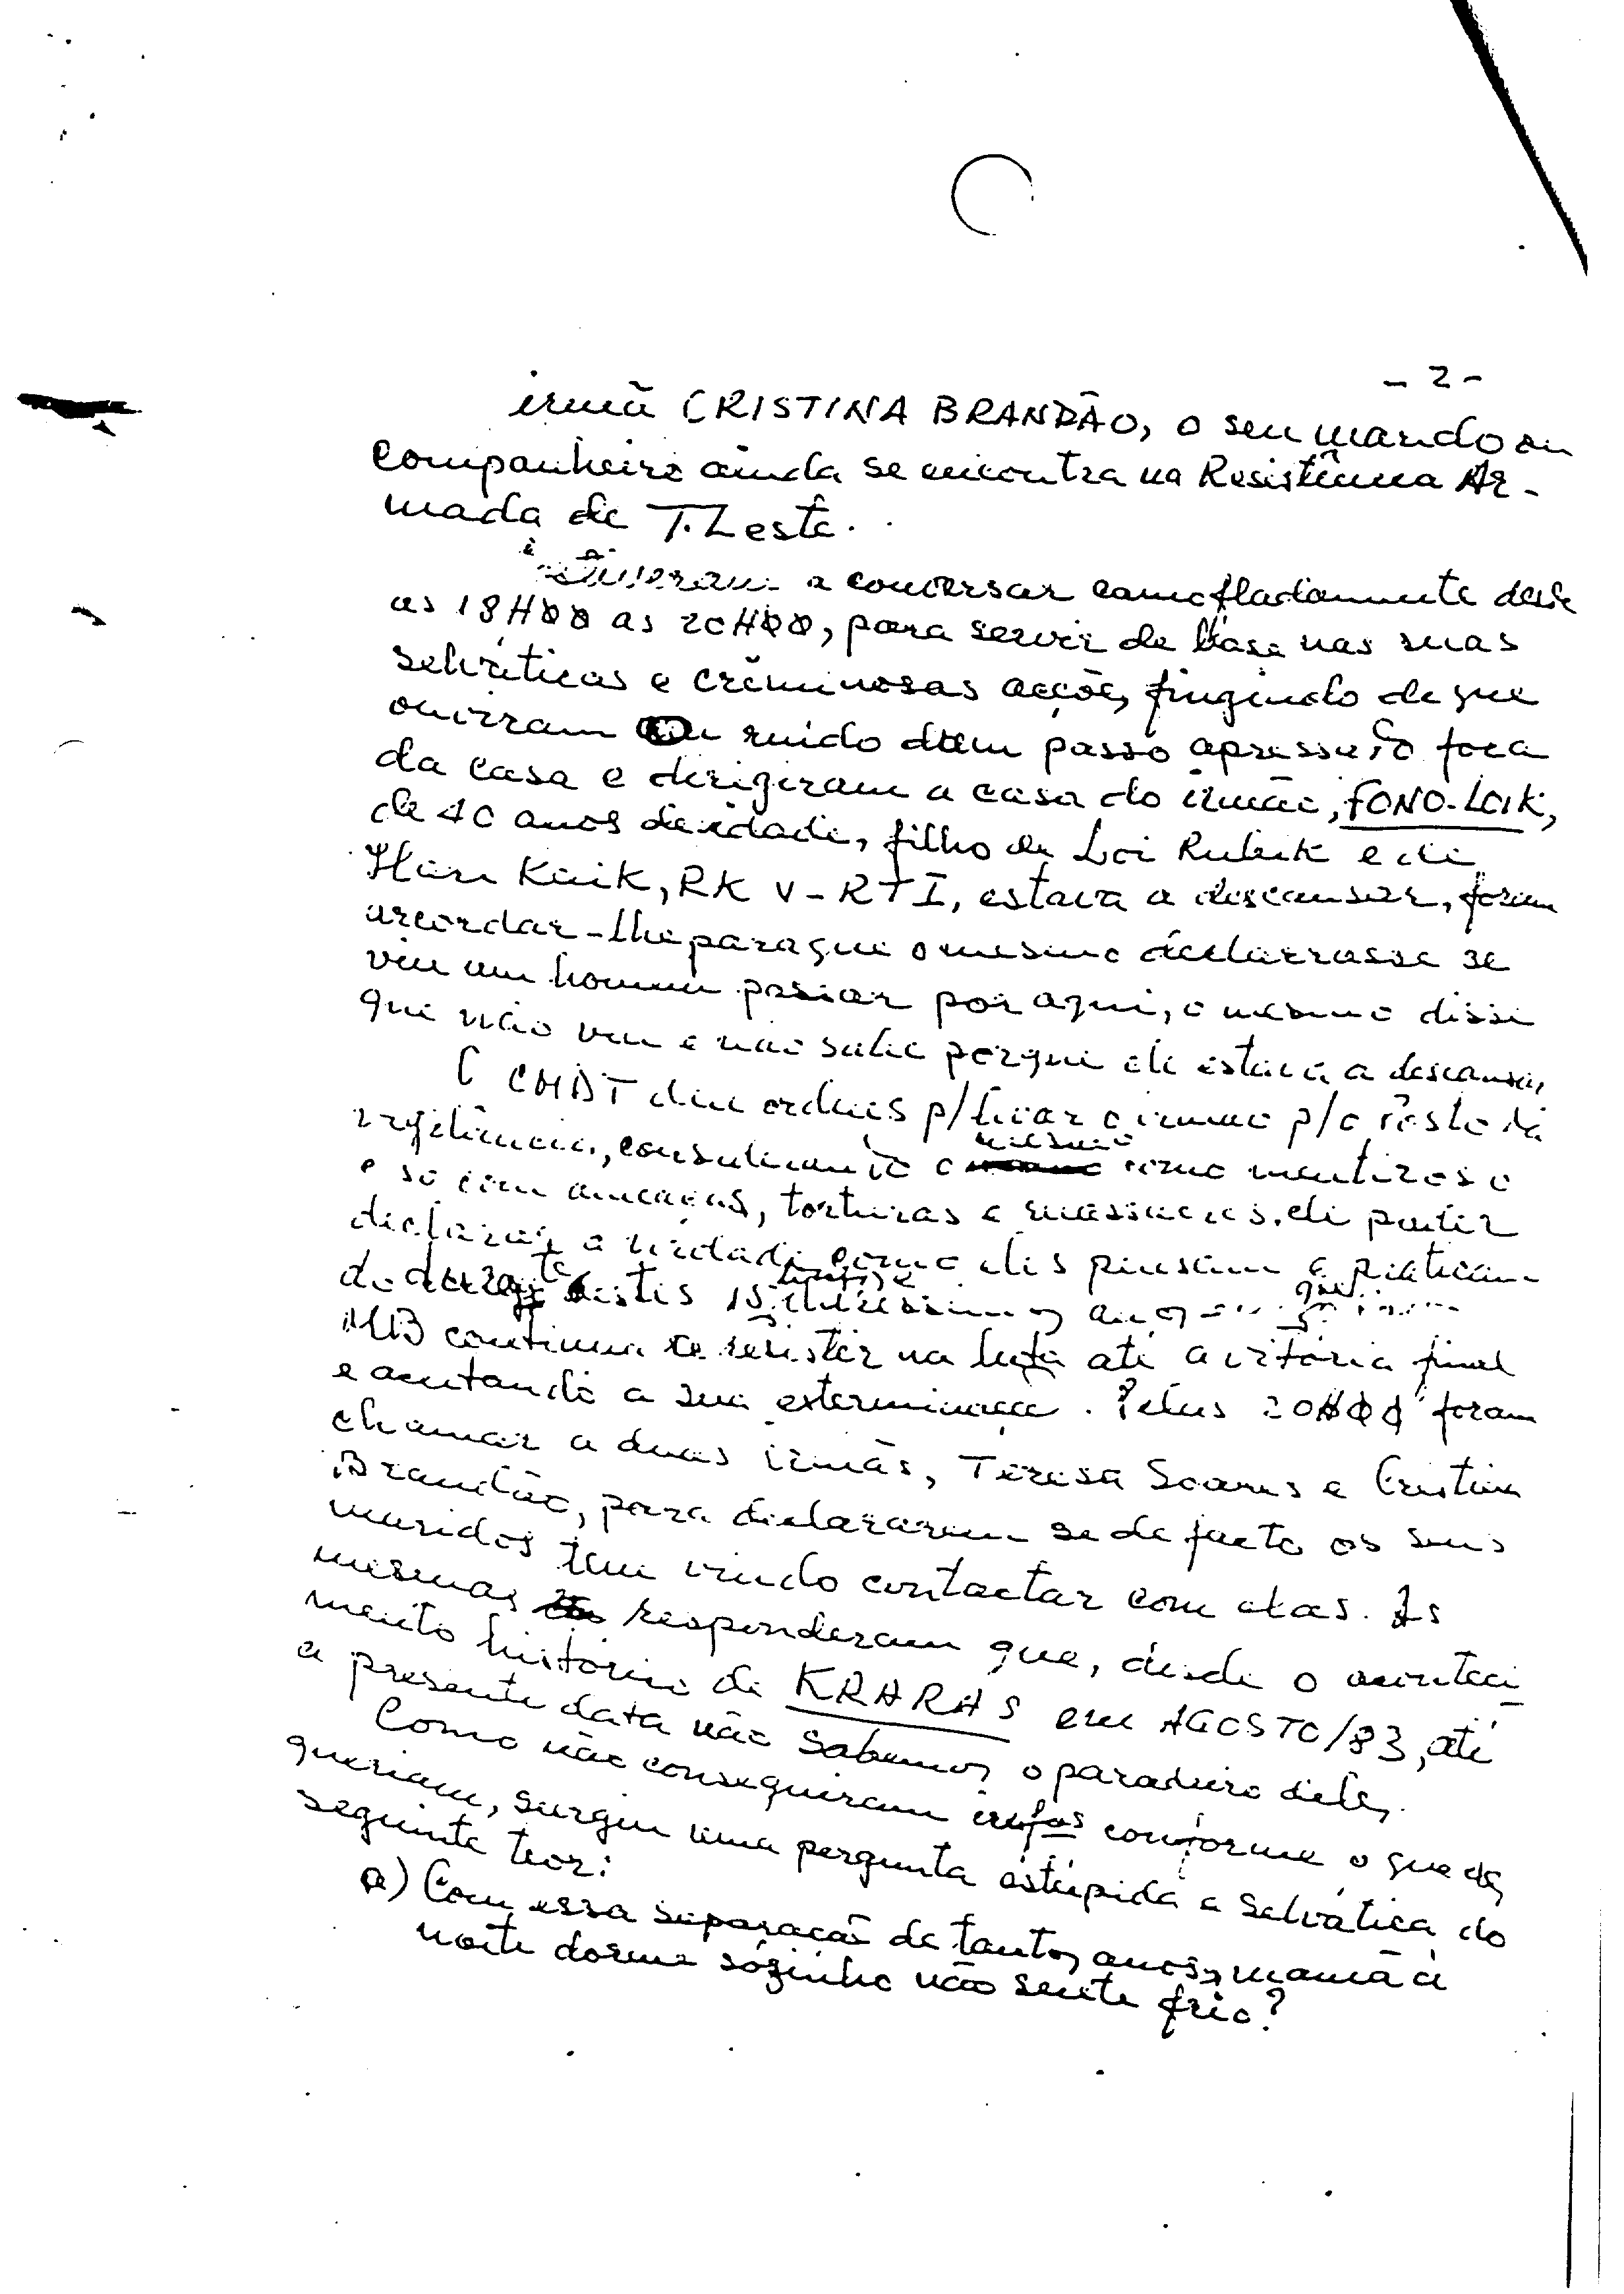 - 2 -
irmã CRISTINA BRANDÃO, o seu marido ou
companheiro ainda se encontra na Resistência Ar-
mada de T. Leste.
a conversar camofladamente desde
as 18H00 as 20H00, para servir de base nas suas
selváticas e criminosas acções, fingindo de que
ouviram ruido dum passo apressado fora
da casa e dirigiram a casa do irmão, FONO-LOIK,
de 40 anos de idade, filho de Loi Rubik e de
Kaik, RK V-RTI, estava a descansar, foram
acordar-lhe para que o mesmo declarrasse se
viu um homem passar por aqui, o mesmo disse
que não viu e não sabe porque ele estava a descansar,
O CMDT deu ordens p/levar o irmão p/o posto de
vigilância, considerando o mesmo como mentiroso
e só com ameaças, torturas e massacres, ele poder
declarar a verdade como eles pensam e praticam
durante estes 15
MB continua a resistir na luta até a vitória final
e a sua exterminação. Pelas 20H00 foram
chamar a duas irmãs, Teresa Soares e Cristina
Brandão, para declararem se de facto os seus
maridos tem vindo contactar com elas. As
mesmas responderam que, desde o aconteci-
mento histórico de KRARAS em AGOSTO/83, até
a presente data não sabemos o paradeiro deles.
Como não conseguiram infos conforme o que eles
queriam, surgiu uma pergunta estúpida e selvática do
seguinte teor:
a) Com essa separação de tantos anos, mamã à
noite dorme sózinho não sente frio?